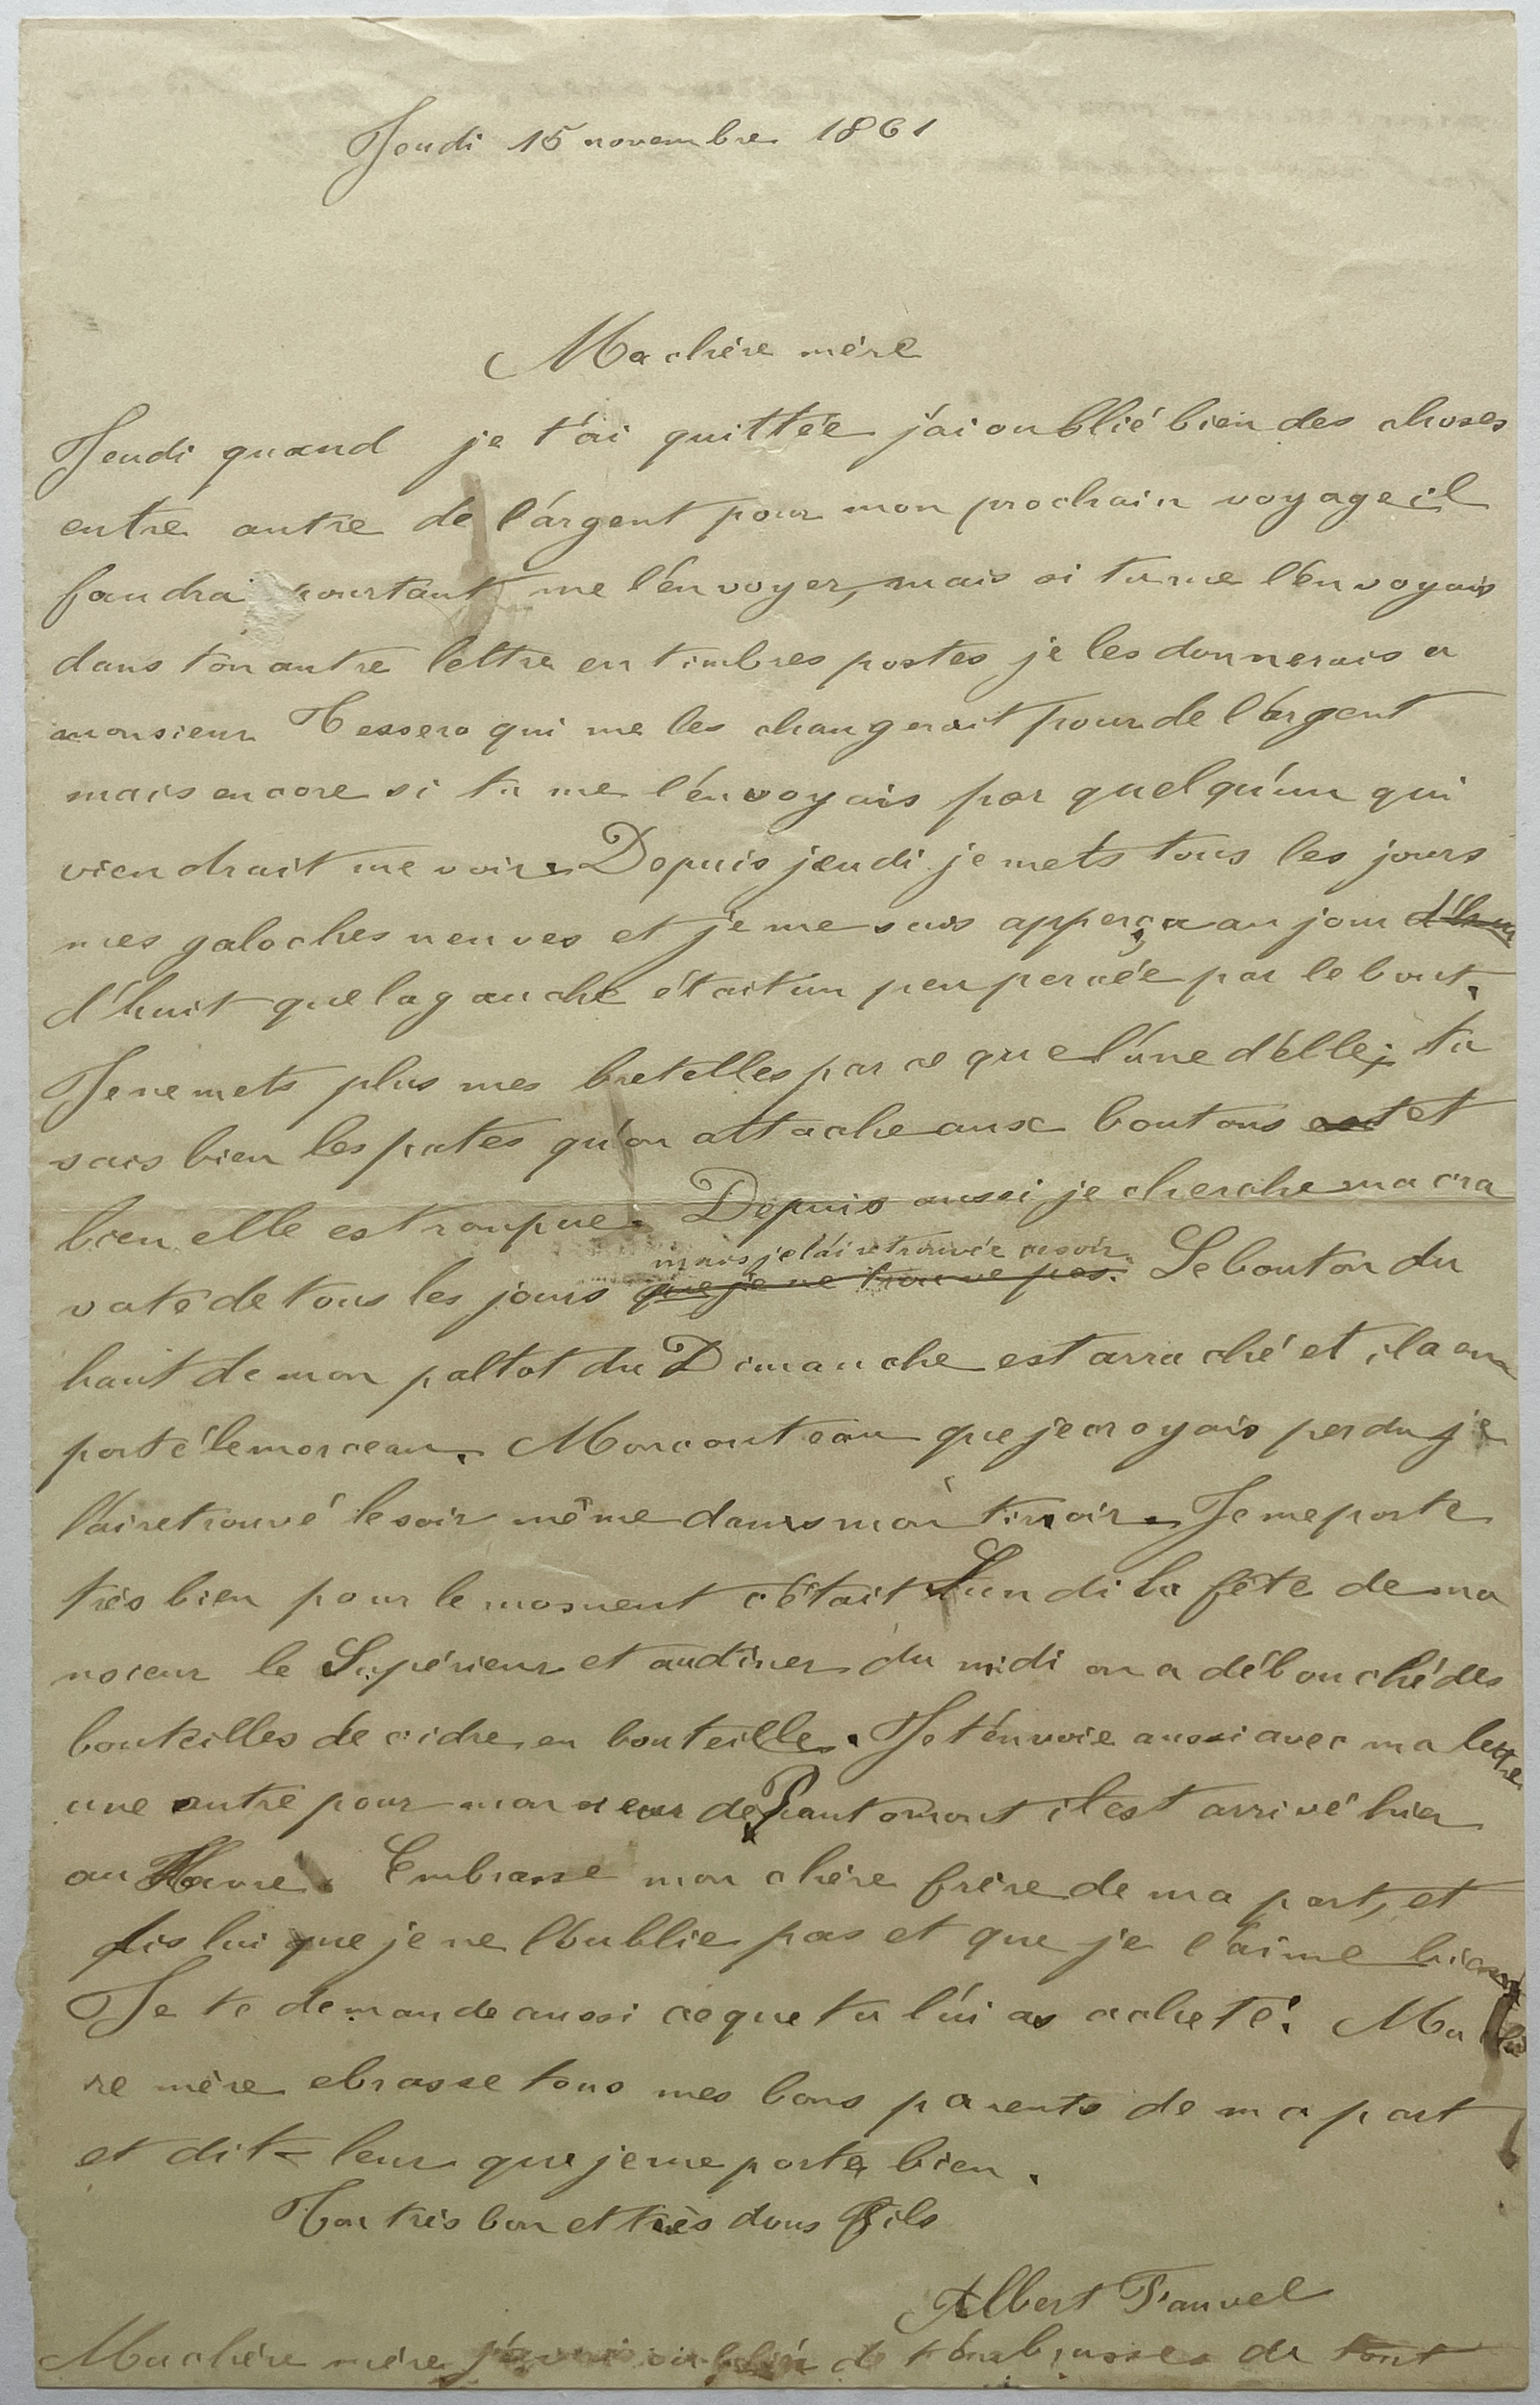 Jeudi 15 novembre 1861
Ma chère mère
Jeudi quand je t'ai quittée j'ai oublié bien des choses
entre autre de l'argent pour mon prochain voyage il
faudra pourtant me l'envoyer, mais si tu me l'envoyais
dans ton autre lettre en timbres postes je les donnerais a
monsieur Tessero qui me les changerait pour de l'argent
mais encore si tu me l'envoyais par quelqu'un qui
viendrait me voir. Depuis jeudi je mets tous les jours
mes galoches neuves et je me suis apperçu aujour d'hui
d'huit que la gauche était un peu percée par le bout.
Je ne mets plus mes bretelles par ce que l'une d'elle; tu
sais bien les pates qu'on attache aux boutons est et
bien elle est rompue. Depuis aussi je cherche ma cra
mais je l'ai retrouvée ce soir.
vate de tous les jours que je ne trouve pas. Le bouton du
haut de mon paltot du Dimanche est arraché et il a em
porté le morceau. Mon couteau que je croyais perdu je
l'ai retrouvé le soir même dans mon tiroir. Je me porte
très bien pour le moment c'était Lundi la fête de mo
nsieur le Supérieur et au diner du midi on a débouché des
bouteilles de cidre en bouteille. Je t'envoie aussi avec ma lettre
une autre pour monsieur de Pantomont il est arrivé hier
au Havre. Embrasse mon chère frère de ma part, et
dis lui que je ne l'oublie pas et que je l'aime bien
Je te demande aussi ce que tu l'ui as acheté. Ma chè
re mère ebrasse tous mes bons parents de ma part
et dit-leur que je me porte bien.
Ton très bon et très doux fils
Albert Fauvel
Ma chère mère j'avais oublié de t'embrasser de tout